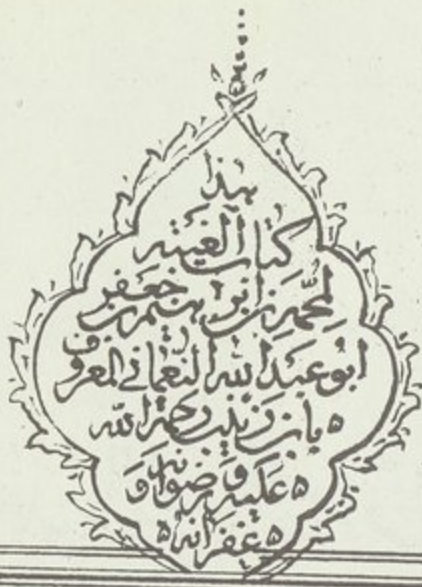 هذا
كتاب الغيبة
لمحمد بن ابراهيم بن جعفر
ابو عبد الله النعماني المعروف
بابن زينب رحمة الله
عليه ورضوانه و
غفرانه